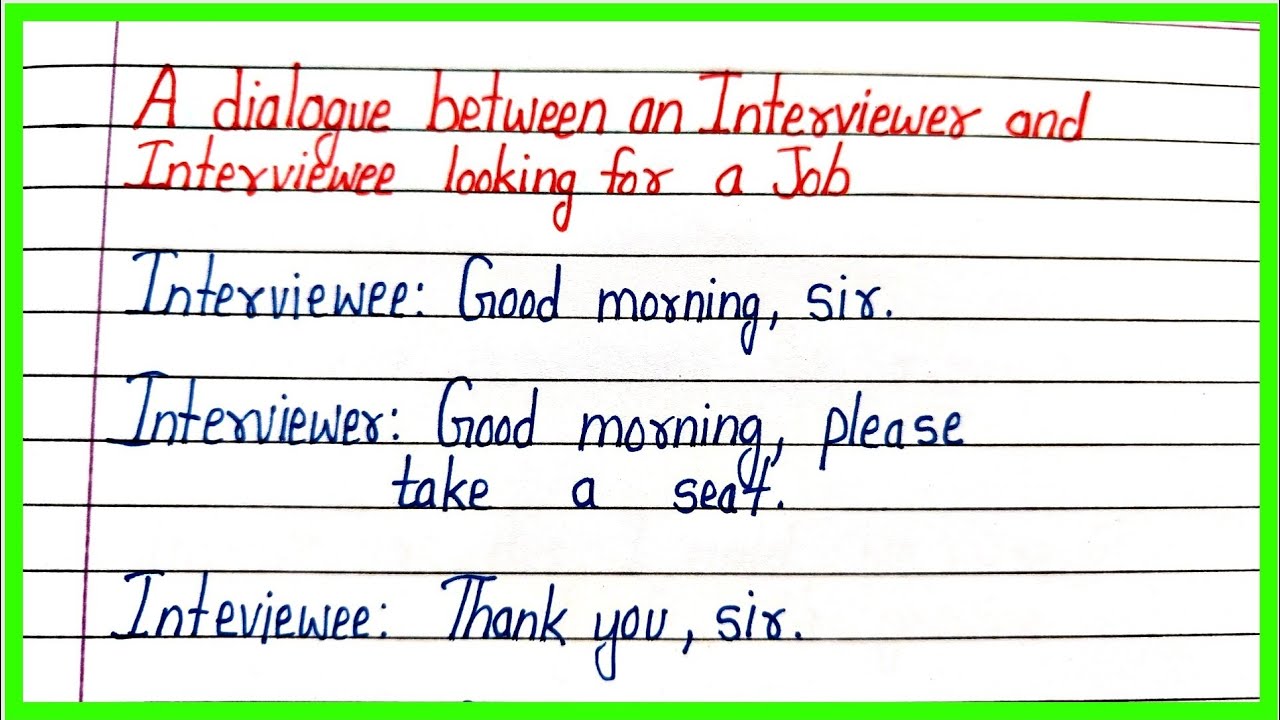 A dialogue between an Interviewer and
Interviewee looking for a Job
Interviewee: Good morning, sir.
Interviewer: Good morning, please
take a seat.
Inteviewee: Thank you, sir.